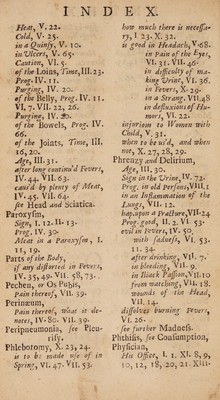 INDEX.
Heat, V. 22.
Cold, V. 25.
in a Quinsy, V. 10.
in Ulcers, V. 65.
Caution, VI. 5.
of the Loins, Time, III. 23.
Prog. IV. 11.
Purging, IV. 20.
of the Belly, Prog. IV. 11.
VI, 7. VII. 22, 26.
Purging, IV. 20.
of the Bowels, Prog. IV.
66.
of the Joints, Time, III.
16, 20.
Age, III. 31.
after long continu'd Fevers,
IV. 44. VII. 63.
caus'd by plenty of Meat,
IV. 45. VII. 64.
see Head and Sciatica.
Paroxysm,
Sign, I. 12. II. 13.
Prog. IV. 30.
Meat in a Paroxysm, I.
11, 19.
Parts of the Body,
if any disorder'd in Fevers,
IV. 35, 49. VII. 58, 73.
Pechen, or Os Pubis,
Pain thereof, VII. 39.
Perinæum,
Pain thereof, what it de-
notes, IV. 80. VII. 39.
Peripneumonia, see Pleu-
risy.
Phlebotomy, X. 23, 24.
is to be made use of in
Spring, VI. 47. VII. 53.
how much there is necessa-
ry, I 23. X. 32.
is good in Headach, V. 68.
in Pain of the Eyes,
VI. 31. VII. 46.
in difficulty of ma-
king Urine, VI. 36.
in Fevers, X. 29.
in a Strang. VII. 48
in defluxions of Hu-
mors, VI. 22.
injurious to Women with
Child, V. 31.
when to be us'd, and when
not, X. 27, 28, 29.
Phrenzy and Delirium,
Age, III, 30.
Sign in the Urine, IV. 72.
Prog. in old Persons, VIII. 1
in an Inflammation of the
Lungs, VII. 12.
upon a Fracture, VII. 24
Prog. good, II. 2. VI. 53.
evil in Fevers, IV. 50.
with sadness, VI. 53.
II. 34.
after drinking, VII. 7.
in bleeding, VII. 9.
in Iliack Passion, VII. 10
from watching, VII. 18.
wounds of the Head,
VII, 14.
dissolves burning Fevers,
VI. 26.
see further Madness.
Phthisis, see Consumption,
Physician,
His Office, I. 1. XI. 8, 9,
10, 12, 18, 20, 21. XIII.